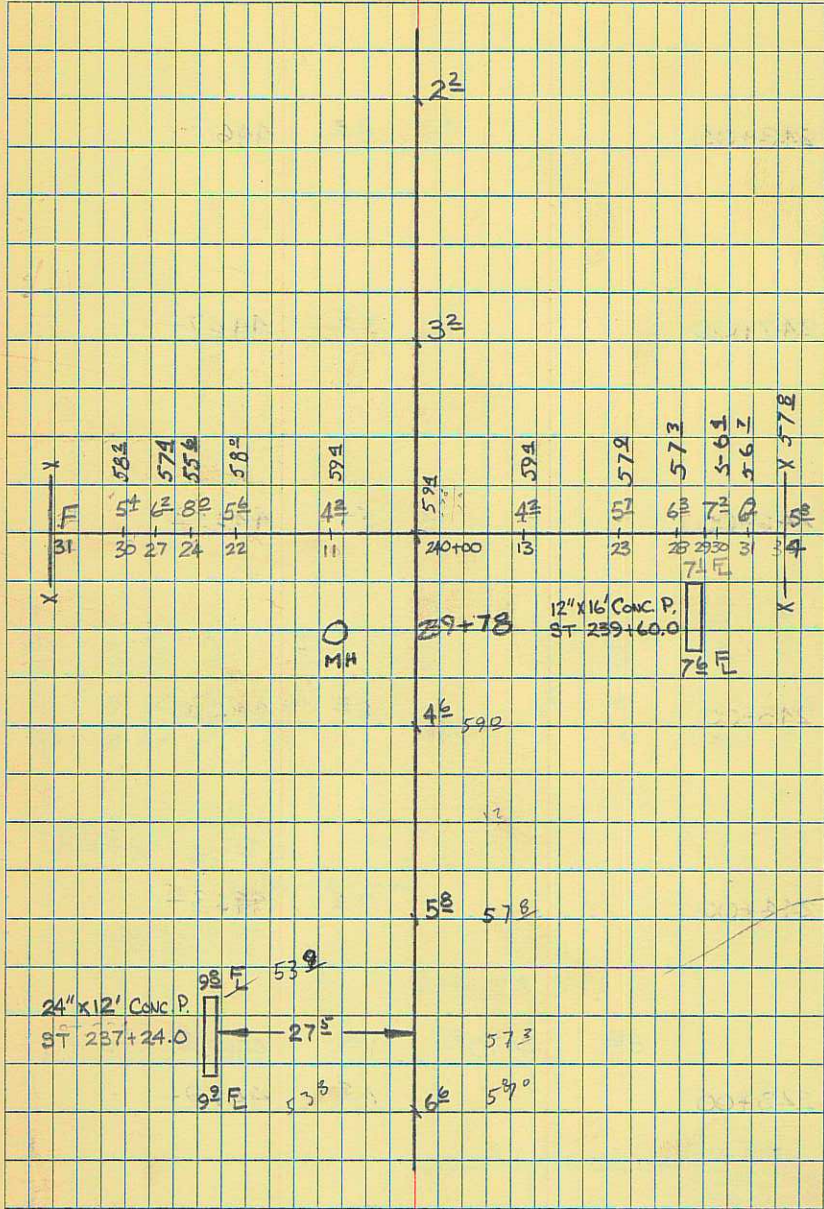 2²
3²
58² 57⁴ 55⁶ 58⁰ 59⁴ 59⁴ 59⁴ 57⁹ 57³ 56⁴ 56⁷ 57⁸
X X
F 5⁴ 6² 8⁰ 5⁶ 4² 4² 5⁷ 6³ 7² 6² 5⁸
31 30 27 24 22 11 240+00 13 23 28 29 30 31 34
X X
7¹ FL
12"X16' CONC. P.
ST 239+60.0
7⁶ FL
MH
239+78
4⁶ 59⁰
5⁸ 57⁸
9⁸ FL 53⁸
24"X12' CONC. P.
ST 237+24.0
27⁵
57³
9⁹ FL 53⁸
6⁶